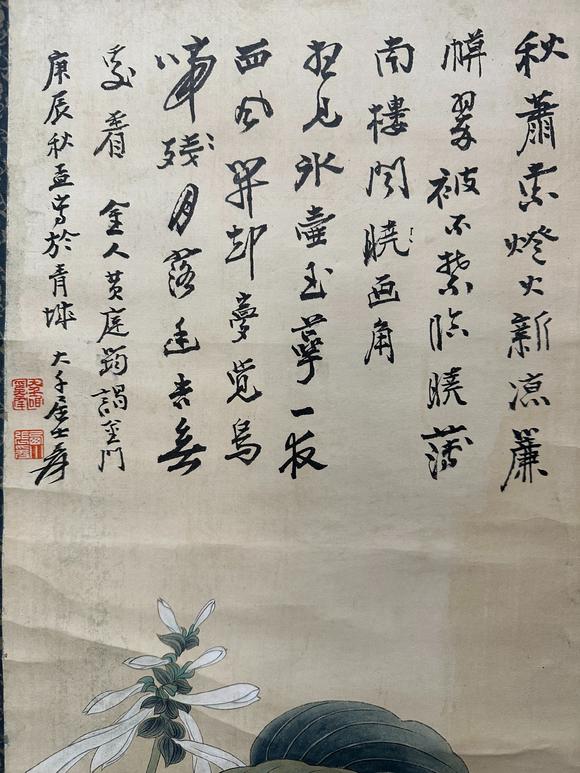 秋蕭索燈火新涼簾
幙翠被不禁臨曉薄
南樓聞曉画角
想見冰壺玉萼一夜
西風開却夢覺烏
啼殘月落幽香無
處着 金人黄庭筠謁金門
庚辰秋孟寫於青城 大千居士爰